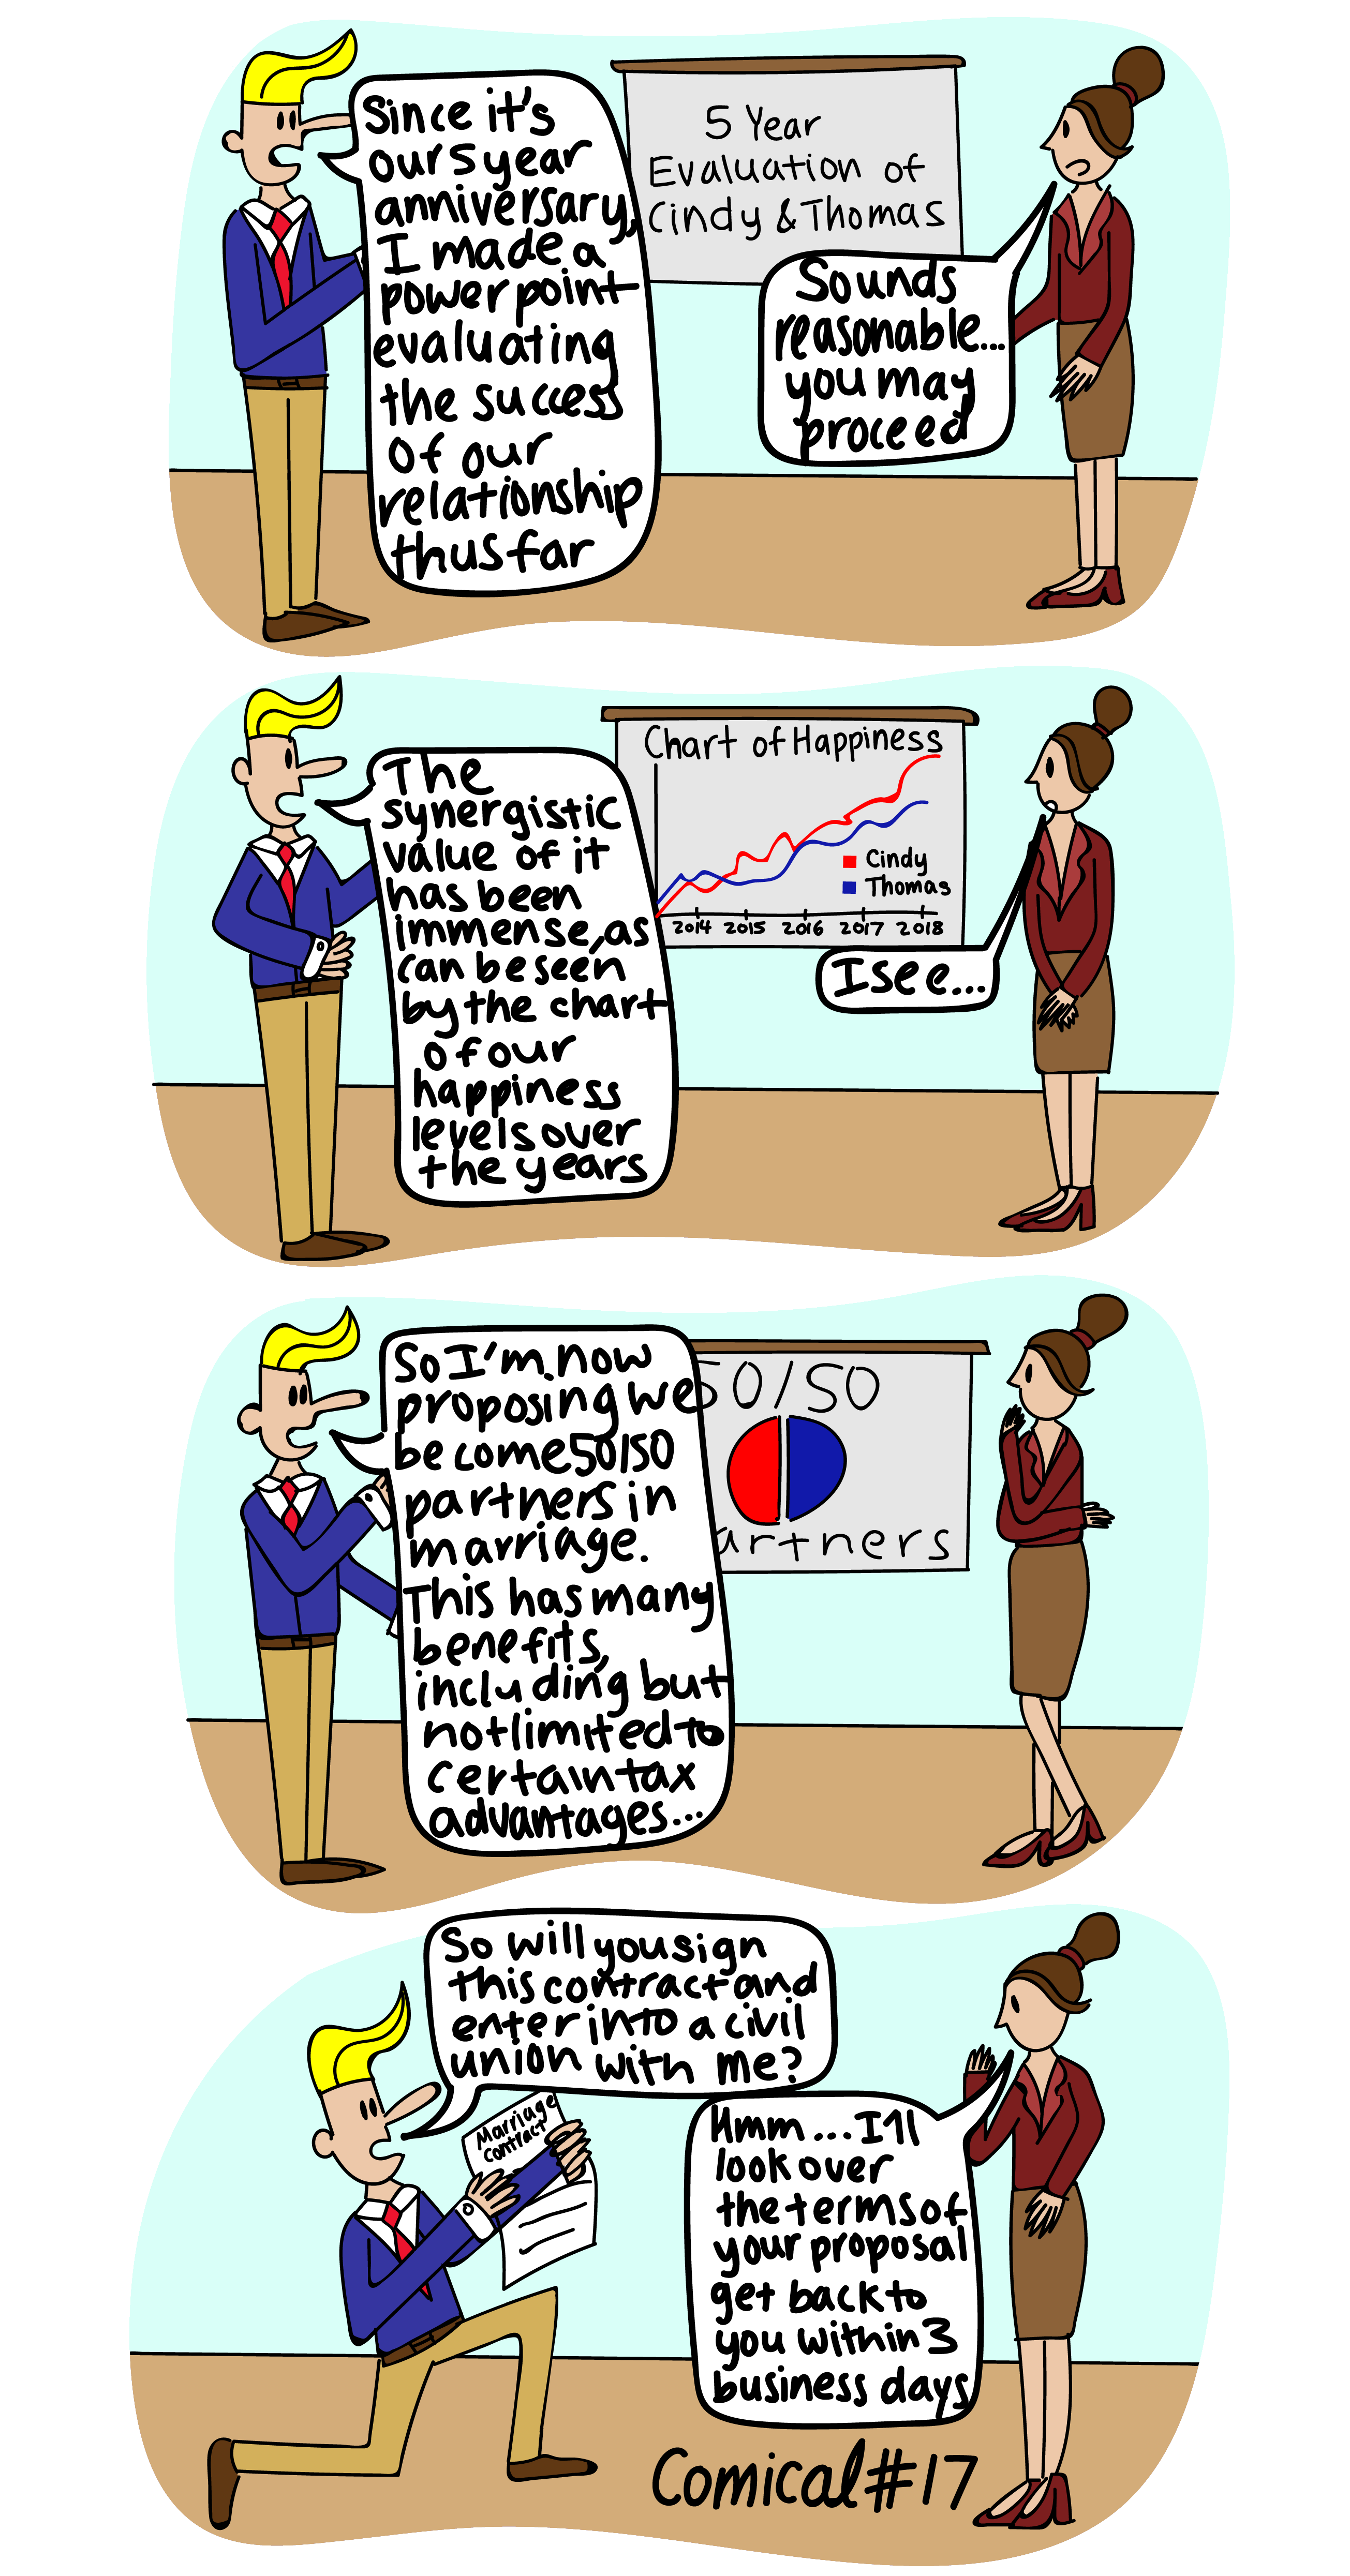 Since it's
our 5 year
anniversary,
I made a
powerpoint
evaluating
the success
of our
relationship
thus far
5 Year
Evaluation of
Cindy & Thomas
Sounds
reasonable...
you may
proceed
The
synergistic
value of it
has been
immense, as
can be seen
by the chart
of our
happiness
levels over
the years
Chart of Happiness
Cindy
Thomas
2014 2015 2016 2017 2018
I see...
So I'm now
proposing we
become 50/50
partners in
marriage.
This has many
benefits,
including but
not limited to
certain tax
advantages...
50/50
artners
So will you sign
this contract and
enter into a civil
union with me?
Marriage
contract
Hmm... I'll
look over
the terms of
your proposal
get back to
you within 3
business days
Comical #17